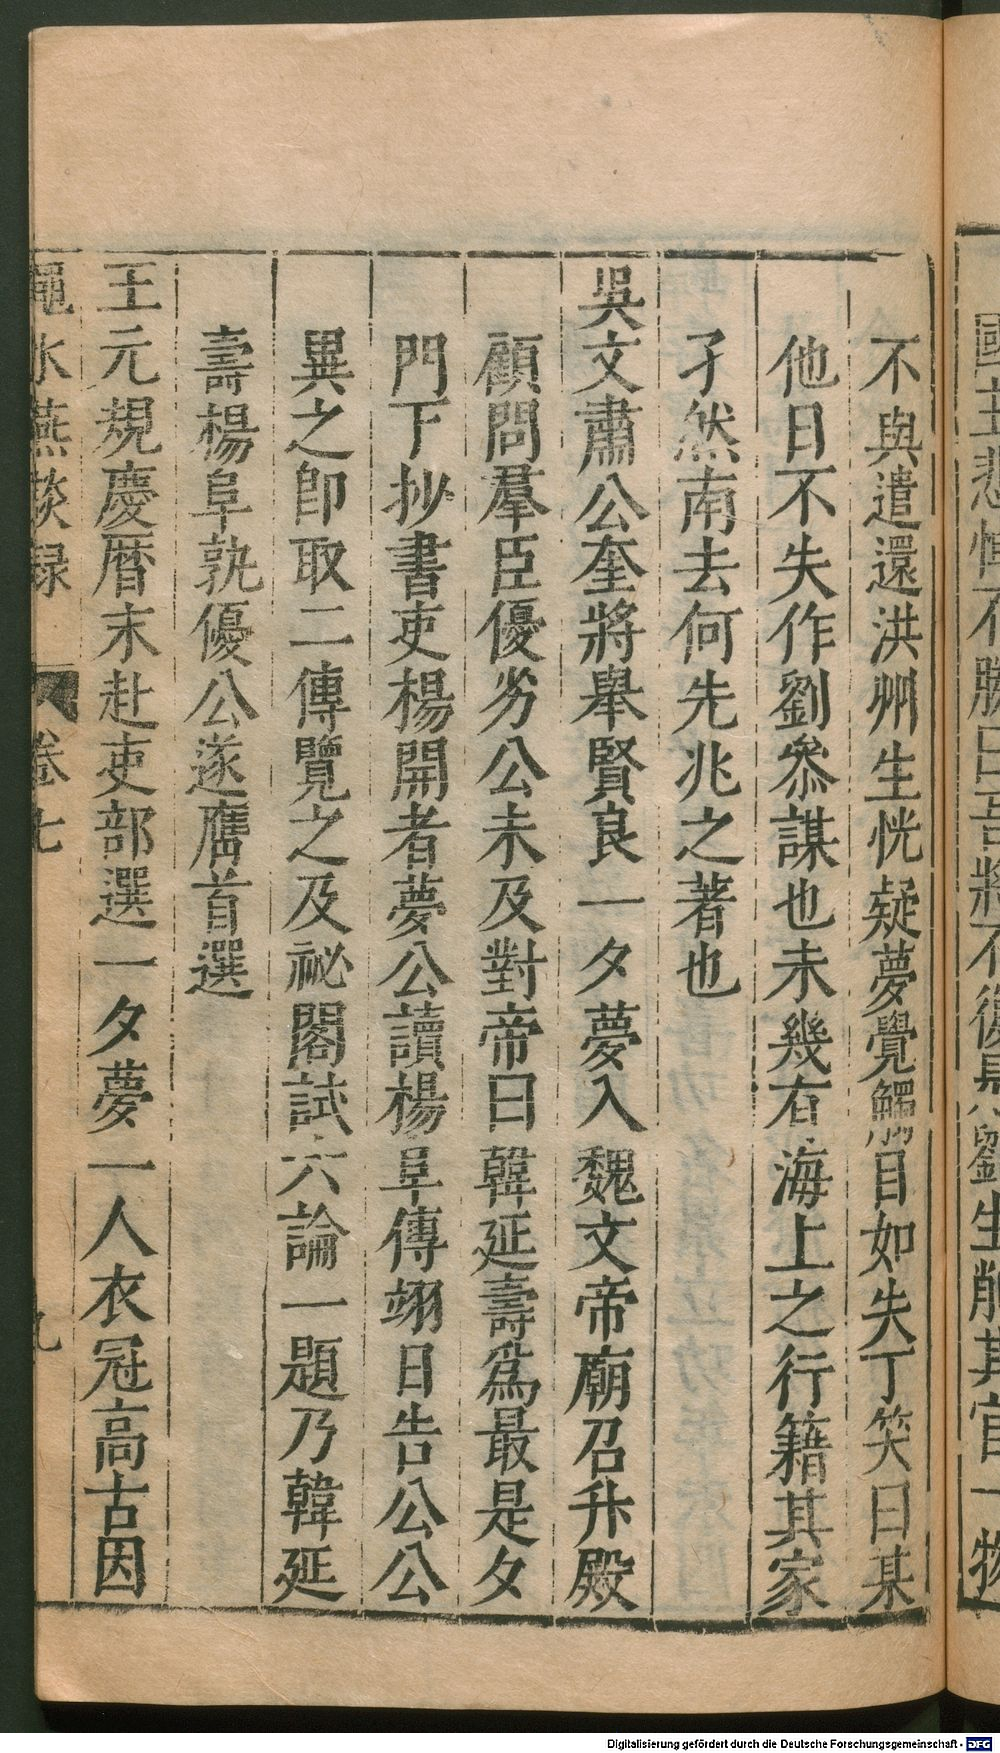 不與遣還洪州生恍疑夢覺觸目如失丁笑曰某
他日不失作劉叅謀也未幾有海上之行籍其家
孑然南去何先兆之著也
吳文肅公奎將舉賢良一夕夢入魏文帝廟召升殿
顧問羣臣優劣公未及對帝曰韓延壽爲最是夕
門下抄書吏楊開者夢公讀楊阜傳翊日告公公
異之卽取二傳覽之及祕閣試六論一題乃韓延
壽楊阜孰優公遂膺首選
王元規慶曆末赴吏部選一夕夢一人衣冠高古因
澠水燕談録 卷七 九
Digitalisierung gefördert durch die Deutsche Forschungsgemeinschaft - DFG